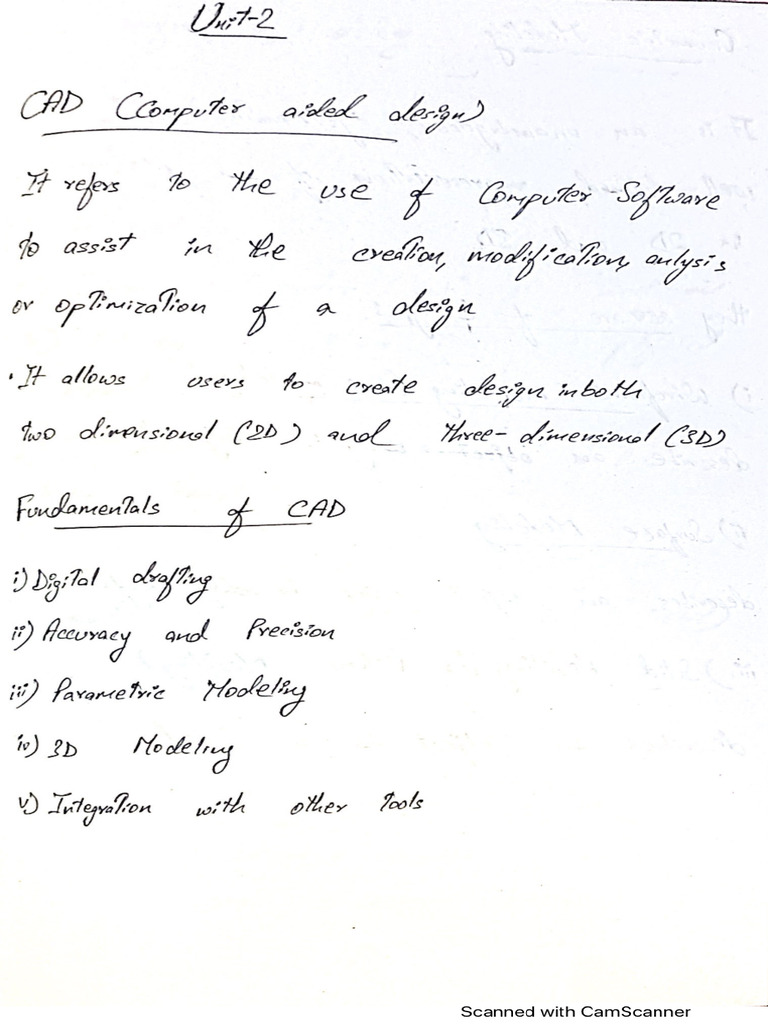 Unit-2
CAD (Computer aided design)
It refers to the use of Computer Software
to assist in the creation, modification, anlysis
or optimization of a design
• It allows users to create design in both
two dimensional (2D) and three-dimensional (3D)
Fundamentals of CAD
i) Digital drafting
ii) Accuracy and Precision
iii) Parametric Modeling
iv) 3D Modeling
v) Integration with other tools
Scanned with CamScanner